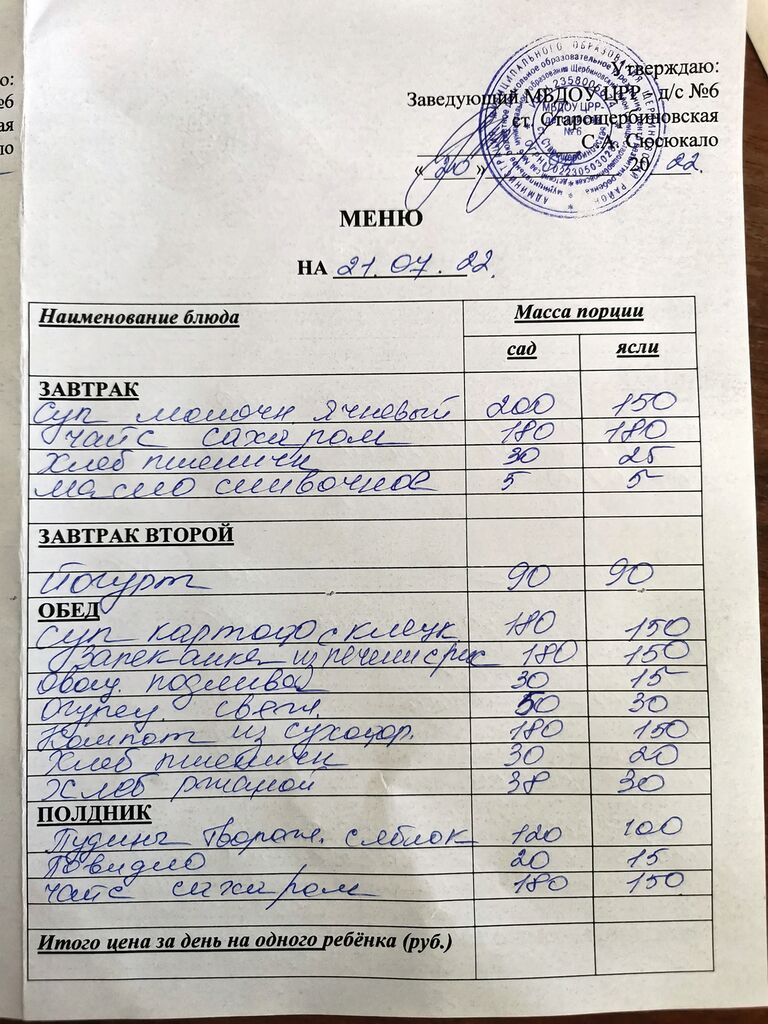 о:
№6
ая
ло
Утверждаю:
Заведующий МБДОУ ЦРР д/с №6
ст. Старощербиновская
С.А. Сюсюкало
« 20 » 20 22.
МЕНЮ
НА 21.07.22.
Наименование блюда Масса порции
сад ясли
ЗАВТРАК
Суп молочн Ячневый 200 150
чай с сахаром 180 180
Хлеб пшеничн 30 25
масло сливочное 5 5
ЗАВТРАК ВТОРОЙ
Йогурт 90 90
ОБЕД
Суп картоф с клецк 180 150
Запеканка из печени с рис 180 150
Овощ. подлива 30 15
Огурец свеж. 50 30
Компот из сухофр. 180 150
Хлеб пшеничн 30 20
Хлеб ржаной 38 30
ПОЛДНИК
Пудинг творож. с яблок 120 100
Повидло 20 15
чай с сахаром 180 150
Итого цена за день на одного ребёнка (руб.)